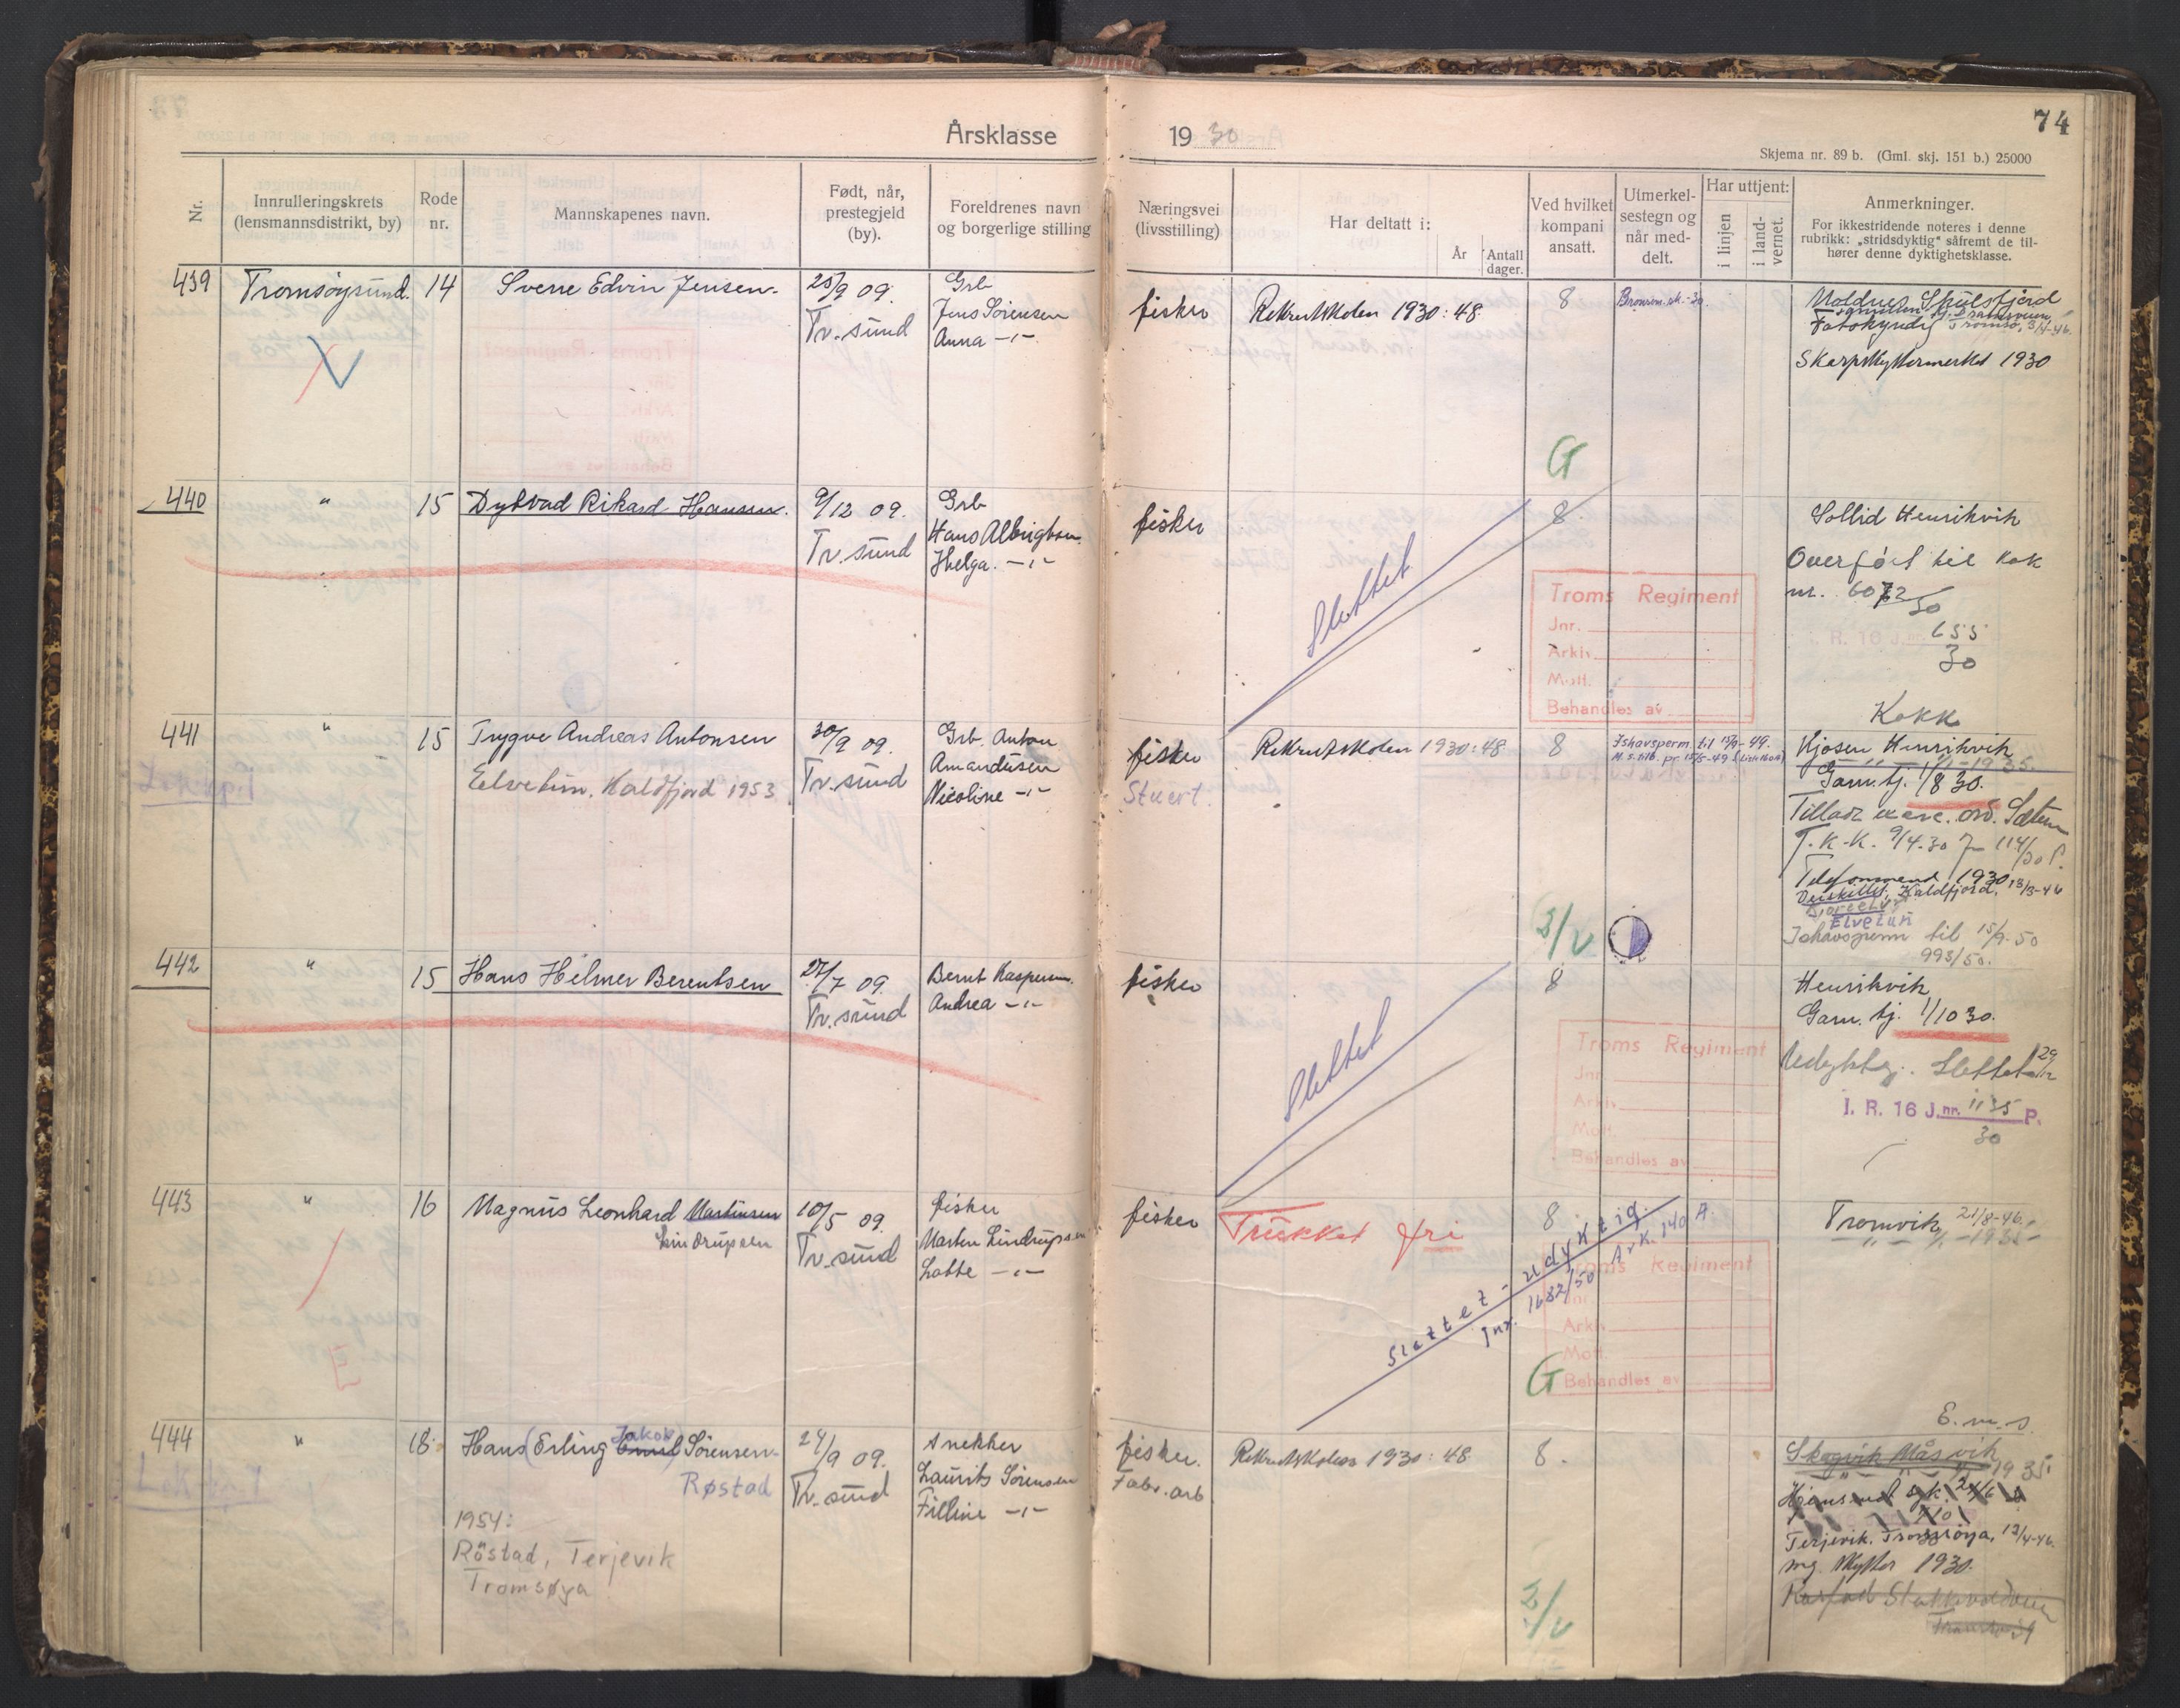 74
Årsklasse 1930
Skjema nr. 89 b. (Gml. skj. 151 b.) 25000
Nr.
Innrulleringskrets (lensmannsdistrikt, by)
Rode nr.
Mannskapenes navn.
Født, når, prestegjeld (by).
Foreldrenes navn og borgerlige stilling
Næringsvei (livsstilling)
Har deltatt i:
År
Antall dager.
Ved hvilket kompani ansatt.
Utmerkelsestegn og når meddelt.
Har uttjent:
i linjen
i landvernet.
Anmerkninger.
For ikkestridende noteres i denne rubrikk: „stridsdyktig“ såfremt de tilhører denne dyktighetsklasse.
439 Tromsøysund. 14 Sverre Edvin Jensen.
25/9 09.
Tv. sund
Grb
Jens Sørensen
Anna -"-
fisker
Rekrutskolen 1930: 48
8
Skulsfjord
Tromsø, 3/4-46.
Skarpskyttermerket 1930
G
440 " 15 Dybvad Rikard Hansen.
9/12 09.
Tv. sund
Grb
Hans Albrigtsen
Helga. -"-
fisker
Slettet
8
Sollid Henrikvik
Overført til kok
nr. 6072/30
I. R. 16 J.nr. 655
30
Troms Regiment
Jnr.
Arkiv
Mott.
Behandles av
441 " 15 Trygve Andreas Antonsen
Elvetun, Kaldfjord 1953
30/9 09.
Tv. sund
Grb. Anton
Amandusen
Nicoline -"-
fisker
Stuert.
Rekrutskolen 1930: 48
8
Ishavsperm. til 15/9-49.
Kokk
Kjosen Henrikvik
" " 1/1-1935.
Garn. tj. 1/8 30.
T.K.K. 9/4-30
Telefonmend 1930
Kaldfjord, 13/3-46
Elvetun
Ishavsperm til 15/9-50
993/50.
442 " 15 Hans Helmer Berentsen
27/7 09.
Tv. sund
Bernt Kaspersen
Andrea -"-
fisker
Slettet
8
Henrikvik
Garn. tj. 1/10 30.
Udyktig. Slettet 29/12
I. R. 16 J.nr. 1135 P.
30
Troms Regiment
Jnr.
Arkiv
Mott.
Behandles av
443 " 16 Magnus Leonhard Martinsen
Lindrupsen
10/5 09.
Tv. sund
fisker
Marten Lindrupsen
Lotte -"-
fisker
Trukket fri
8
Slettet - udyktig.
Jnr. 1682/50 Ark. 140 A.
Tromvik 21/8-46.
" 1/1-1935-
Troms Regiment
Jnr.
Arkiv
Mott.
Behandles av
E
G
444 " 18 Hans (Erling Jakob) Emil Sörensen
Røstad
1954:
Röstad, Terjevik
Tromsøya
24/9 09.
Tv. sund
Snekker
Laurits Sörensen
Filline -"-
fisker.
Fabr. arb
Rekrutskolen 1930: 48
8.
E.m.s.
Skogvik Måsvik
1935
Terjevik. Tromsöya, 12/4-46.
mg. skytter 1930.